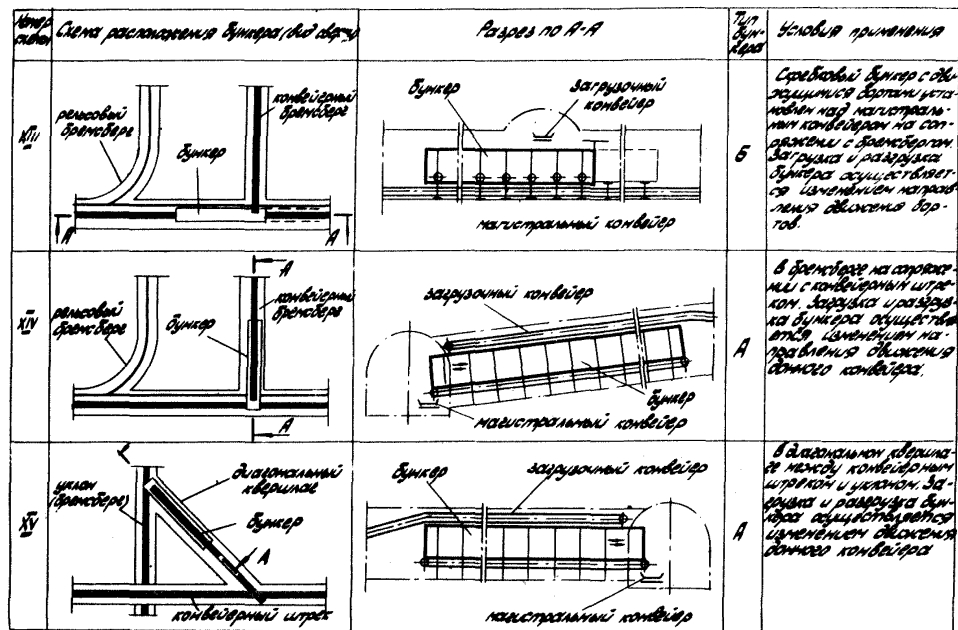 Номер схемы
Схема расположения бункера (вид сверху)
Разрез по А-А
Тип бункера
Условия применения
XIII
рельсовый
бремсберг
конвейерный
бремсберг
бункер
А
А
бункер
загрузочный
конвейер
магистральный конвейер
Б
Скребковый бункер с дви-
жущимися бортами уста-
новлен над магистраль-
ным конвейером на соп-
ряжении с бремсбергом.
Загрузка и разгрузка
бункера осуществляет-
ся изменением направ-
ления движения бор-
тов.
XIV
рельсовый
бремсберг
бункер
А
конвейерный
бремсберг
А
загрузочный конвейер
бункер
магистральный конвейер
А
В бремсберге на сопряже-
нии с конвейерным штре-
ком. Загрузка и разгруз-
ка бункера осуществля-
ется изменением на-
правления движения
донного конвейера.
XV
уклон
(бремсберг)
диагональный
квершлаг
бункер
А
конвейерный штрек
бункер
загрузочный конвейер
магистральный конвейер
А
В диагональном квершла-
ге между конвейерным
штреком и уклоном. За-
грузка и разгрузка бун-
кера осуществляется
изменением движения
донного конвейера